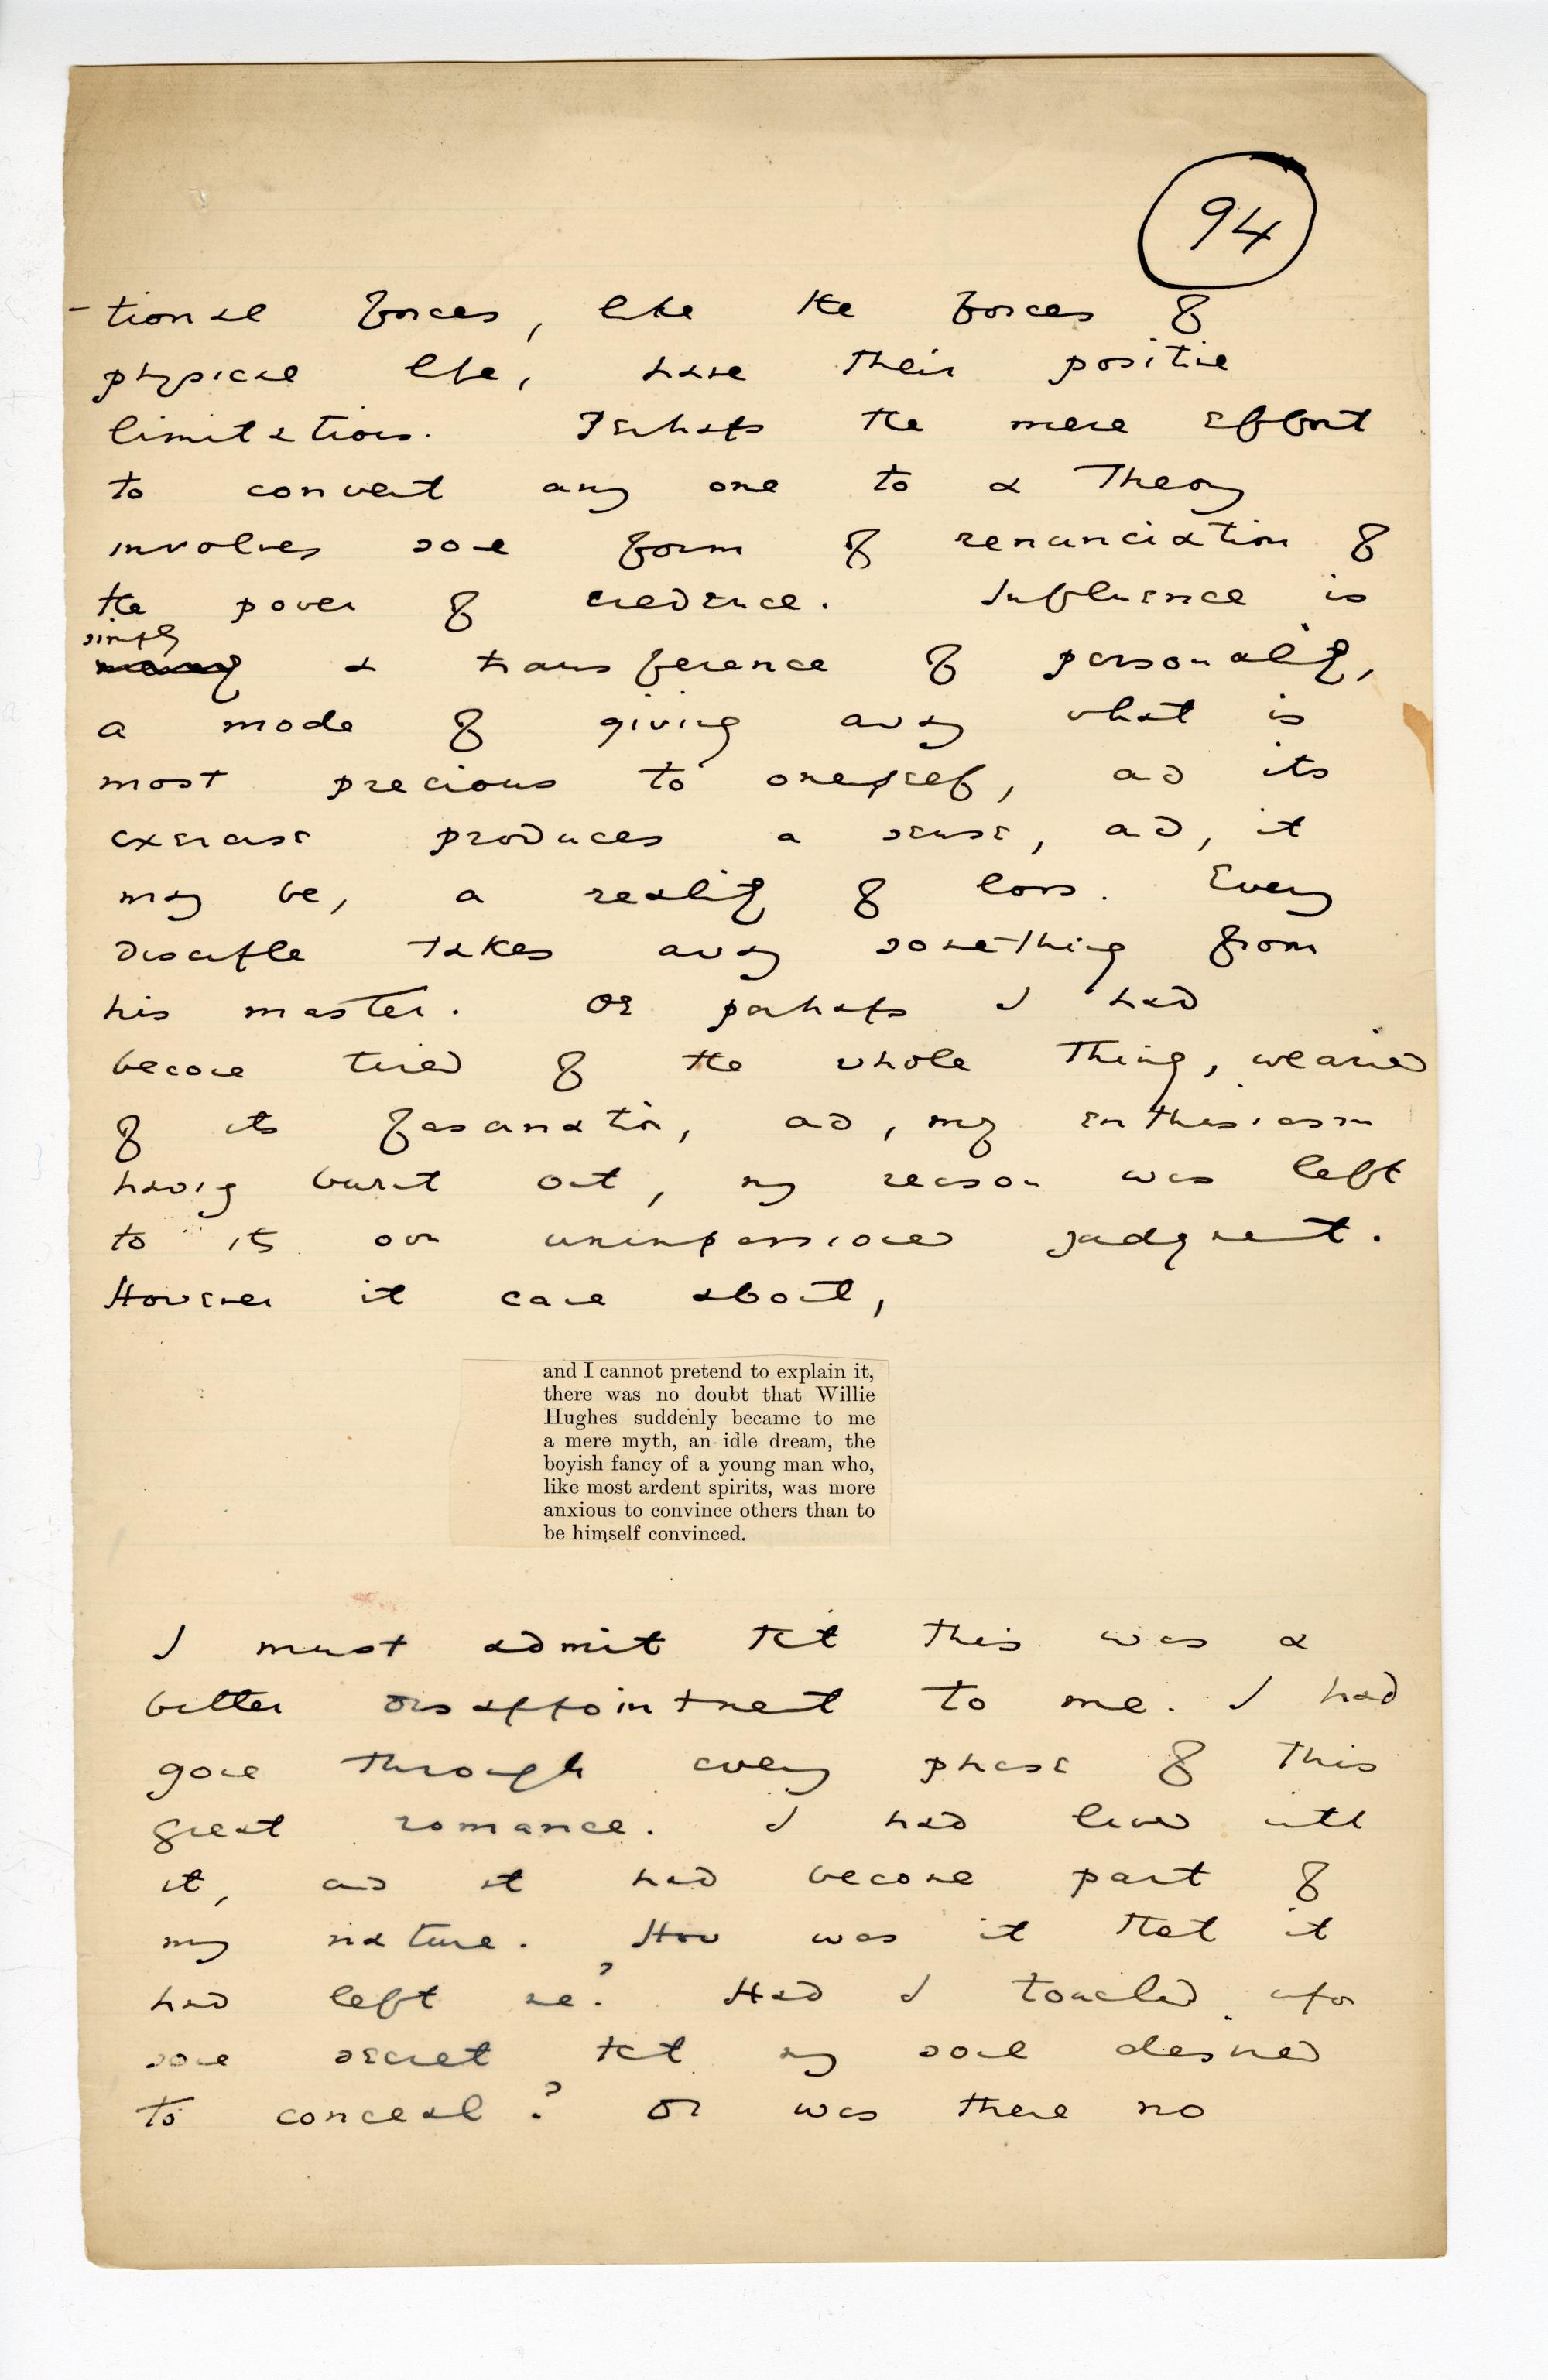 94
-tional forces, like the forces of
physical life, have their positive
limitations. Perhaps the mere effort
to convert any one to a Theory
involves some form of renunciation of
the power of credence. Influence is
simply
merely a transference of personality,
a mode of giving away what is
most precious to oneself, and its
exercise produces a sense, and, it
may be, a reality of loss. Every
disciple takes away something from
his master. Or perhaps I had
become tired of the whole Thing, wearied
of its fascination, and, my enthusiasm
having burnt out, my reason was left
to its own unimpassioned judgment.
However it came about,
and I cannot pretend to explain it,
there was no doubt that Willie
Hughes suddenly became to me
a mere myth, an idle dream, the
boyish fancy of a young man who,
like most ardent spirits, was more
anxious to convince others than to
be himself convinced.
I must admit that this was a
bitter disappointment to me. I had
gone through every phase of this
great romance. I had lived with
it, and it had become part of
my nature. How was it that it
had left me? Had I touched upon
some secret that my soul desired
to conceal? Or was there no